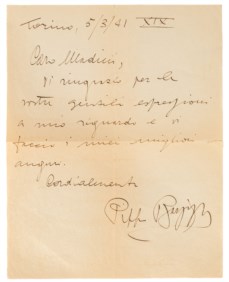 Torino, 5/3/41 XIX
Caro Madieri,
Vi ringrazio per le
vostre gentili espressioni
a mio riguardo e vi
faccio i miei migliori
auguri.
Cordialmente